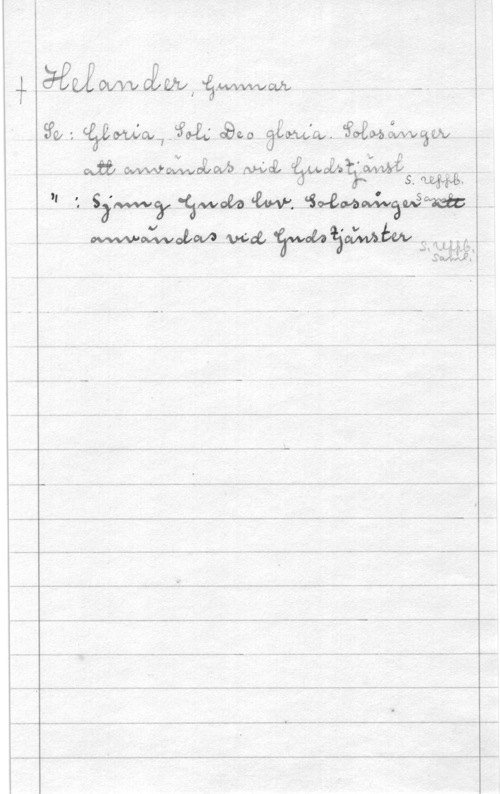 + Helander, Gunnar
Se: Gloria, Soli Deo gloria. Solosånger
att användas vid Gudstjänst
S. reppb.
Saml.
" : Sjung Guds lov. Solosånger att
användas vid Gudstjänster
S. reppb.
Saml.